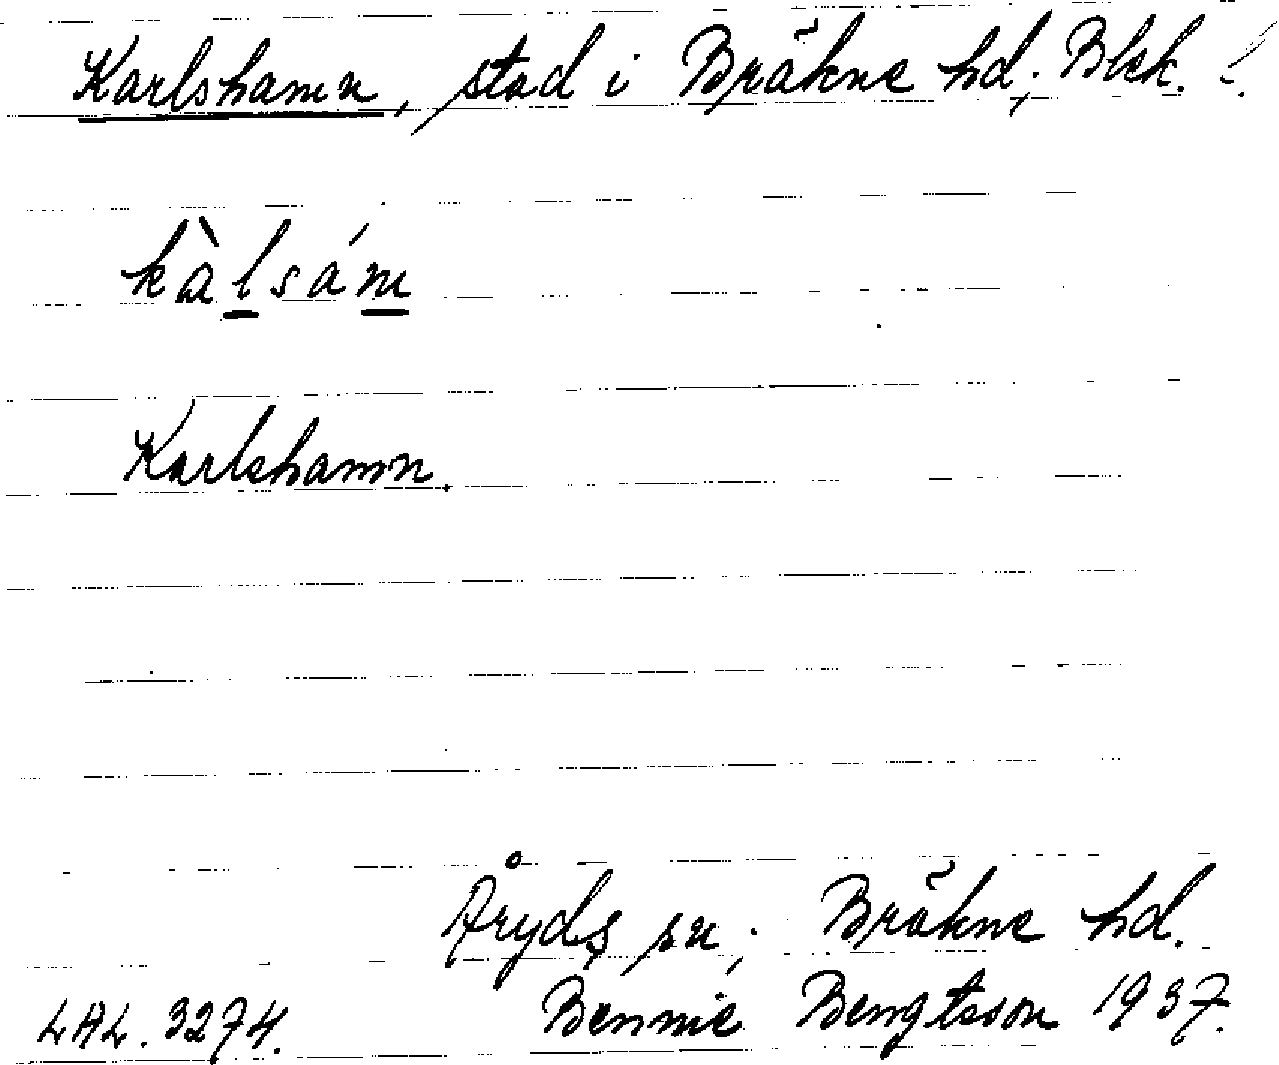 Karlshamn, stad i Bräkne hd; Blek. l.
kàlsám
Karlshamn.
Åryds sn; Bräkne hd.
LAL. 3274. Bennie Bengtsson 1937.